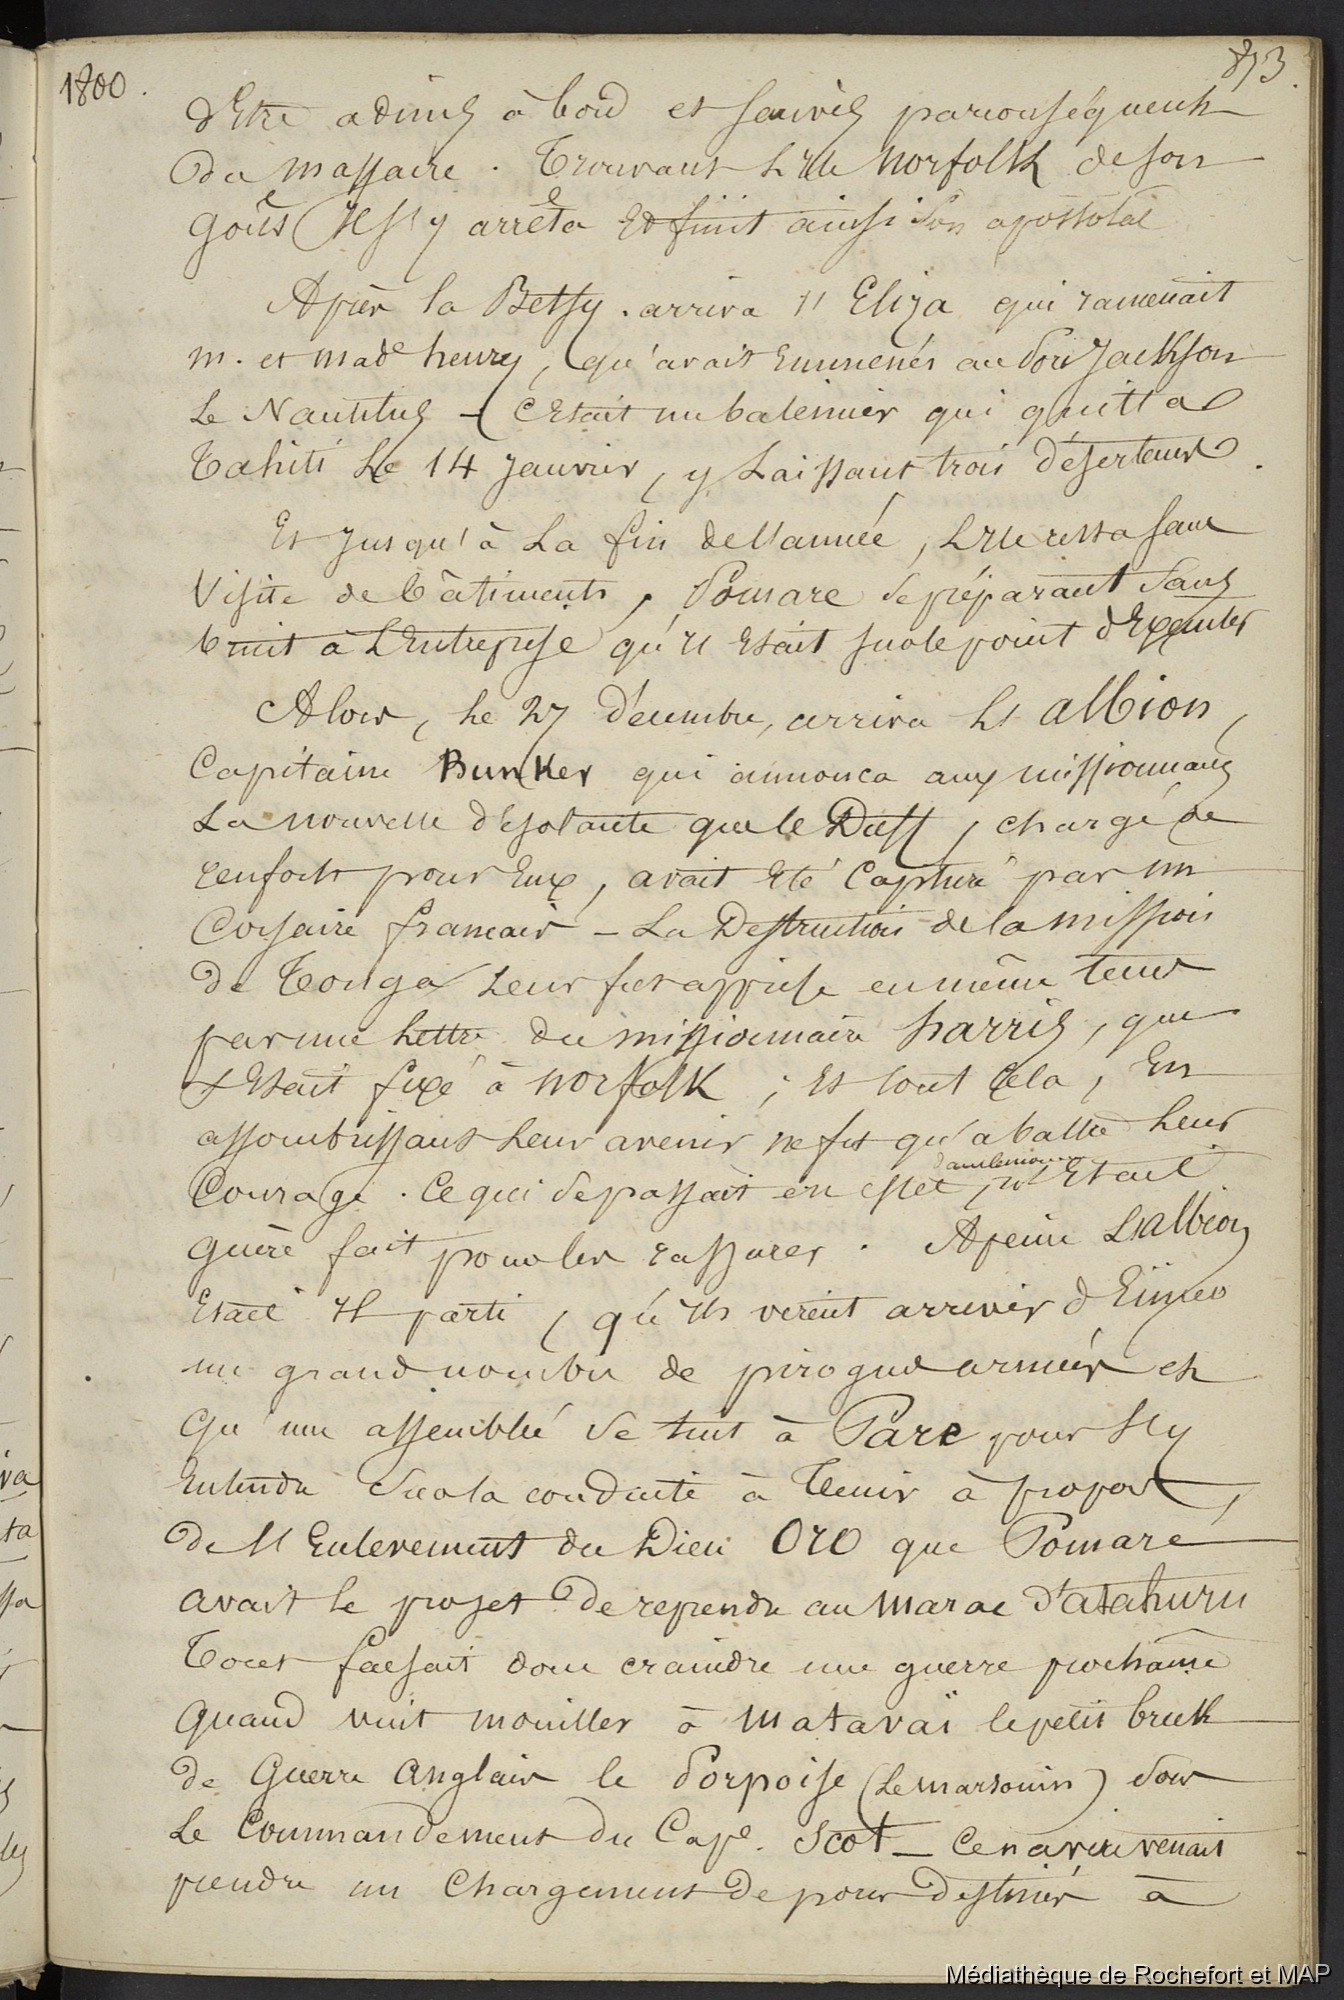 1800.
853.
d'Etre admis à bord et sauvés par conséquent
Du massacre. Trouvant L'Ile Norfolk de son
goût Il s'y arrêta Et finit ainsi son apostolat
Après la Betsy. arriva l'Eliza qui ramenait
m. et made henry, qu'avait Emmenés au Port Jackson
Le Nautilus – C'Etait un baleinier qui quitta
Tahiti Le 14 Janvier, y Laissant trois déserteurs.
Et Jusqu'à La fin de l'année, L'Ile resta sans
Visite de bâtiments, Pomare se préparant sans
bruit à L'Entreprise qu'il Etait sur le point d'Exécuter
Alors, Le 27 Décembre, arriva L'albion,
Capitaine Bunker qui annonca aux missionnaires
La nouvelle désolante que le Duff, chargé de
renforts pour Eux, avait Eté Capturé par un
Corsaire francais – La Destruction de la mission
de Tonga Leur fut apprise en même tems
par une Lettre du missionnaire harris, que
s'Etait fixé à Norfolk; Et tout Cela, En
assombrissant Leur avenir ne fut qu'abattre Leur
d'ailleurs
Courage. Ce qui se passait en effet, n'Etait
guère fait pour les rassurer. A peine L'albion
Etait Il parti, qu'Ils virent arriver d'Eimeo
un grand nombre de pirogues armées et
qu'une assemblée se tint à Pare pour s'y
Entendre sur la conduite à Tenir à propos
De l'Enlevement du Dieu Oro que Pomaré
avait le projet De reprendre au Marae d'atahuru
Tout faisait donc craindre une guerre prochaine
quand vint mouiller à Matavaï le petit brick
de Guerre Anglais le Porpoise (Le marsouin) sous
Le Commandement du Cape. Scot – Ce navire venait
prendre un Chargement De porcs Destinés à
Médiathèque de Rochefort et MAP